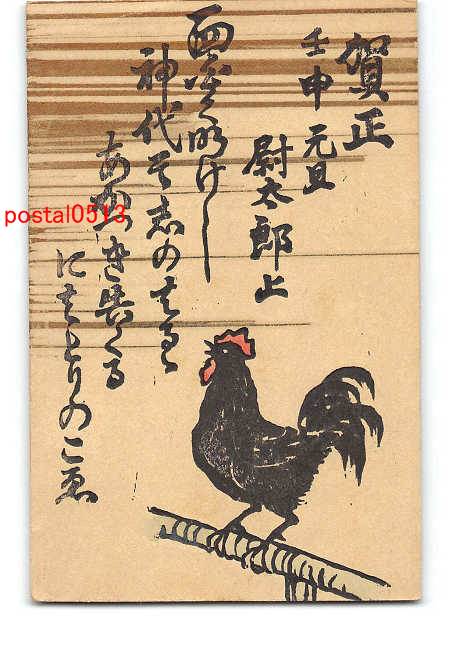 賀正
壬申 元旦
尉太郎上
明けし
神代そ志のはる
あかつき告くる
にはとりのこゑ
postal0513